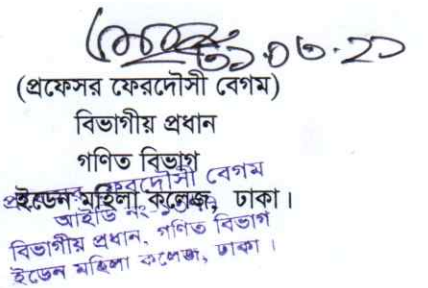 ৩১.০৩.২১
(প্রফেসর ফেরদৌসী বেগম)
বিভাগীয় প্রধান
গণিত বিভাগ
ইডেন মহিলা কলেজ, ঢাকা।
প্রফেসর ফেরদৌসী বেগম
আইডি নং-
বিভাগীয় প্রধান, গণিত বিভাগ
ইডেন মহিলা কলেজ, ঢাকা।